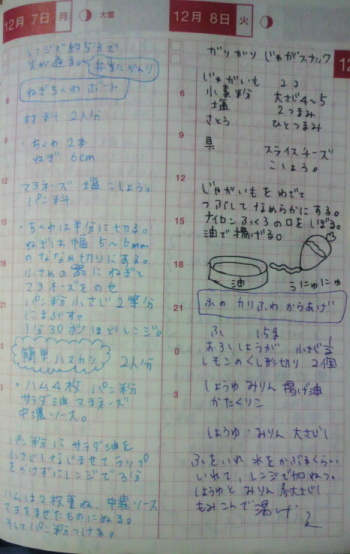 12月 7日 月 大雪
ところが約5分で
火が通る。
ねぎちくわ ボート
材料 2人分
・ちくわ 2本
ねぎ 6cm
マヨネーズ 塩 こしょう。
パン粉
・ちくわは半分に切る。
ねぎは幅 5〜6mm
のななめ切りにする。
小さめの器にねぎと
マヨネーズをのせ
パン粉 小さじ2等分
にまぶす。
1分30秒ほどレンジで。
簡単 ハムカツ 2人分
・ハム4枚 パン粉
サラダ油 マヨネーズ
中濃ソース。
パン粉に サラダ油を
小さじ1なじませて ラップ
をかけずにレンジで 3分
ハムは2枚重ね、中濃ソース
マヨをまぜたものにぬる。
そしてパン粉つける。
12月 8日 火
がりがり じゃがスナック
じゃがいも 2コ
小麦粉 大さじ4〜5
塩 2つまみ
さとう ひとつまみ
具 スライスチーズ
こしょう。
じゃがいもをゆでて
つぶしてなめらかにする。
ナイロンふくろの口をしぼる。
油で揚げる。
油
うにゅにゅ
ふの カリふわ からあげ
ふ 15g
おろししょうが 小さじ½
レモンのくし形切り 2個
しょうゆ みりん 揚げ油
かたくりこ
しょうゆ・みりん 大さじ1
ふをいれ 水をかぶるくらい
いれて、レンジで加ねつ。
しょうゆと みりん 各大さじ1
もみこんで 揚げ
2
6
9
12
15
18
21
0
3